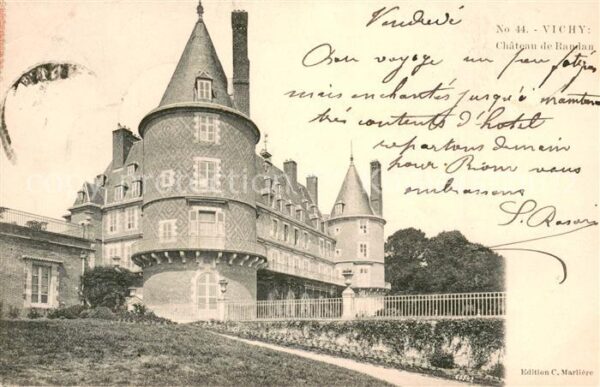 No 44. - VICHY:
Château de Randan
Vendredi
Bon voyage un peu fatigués
mais enchantés jusqu'à maintenant
très contents d'hotel
repartons demain
pour Riom vous
embrassons
Edition C. Marlière